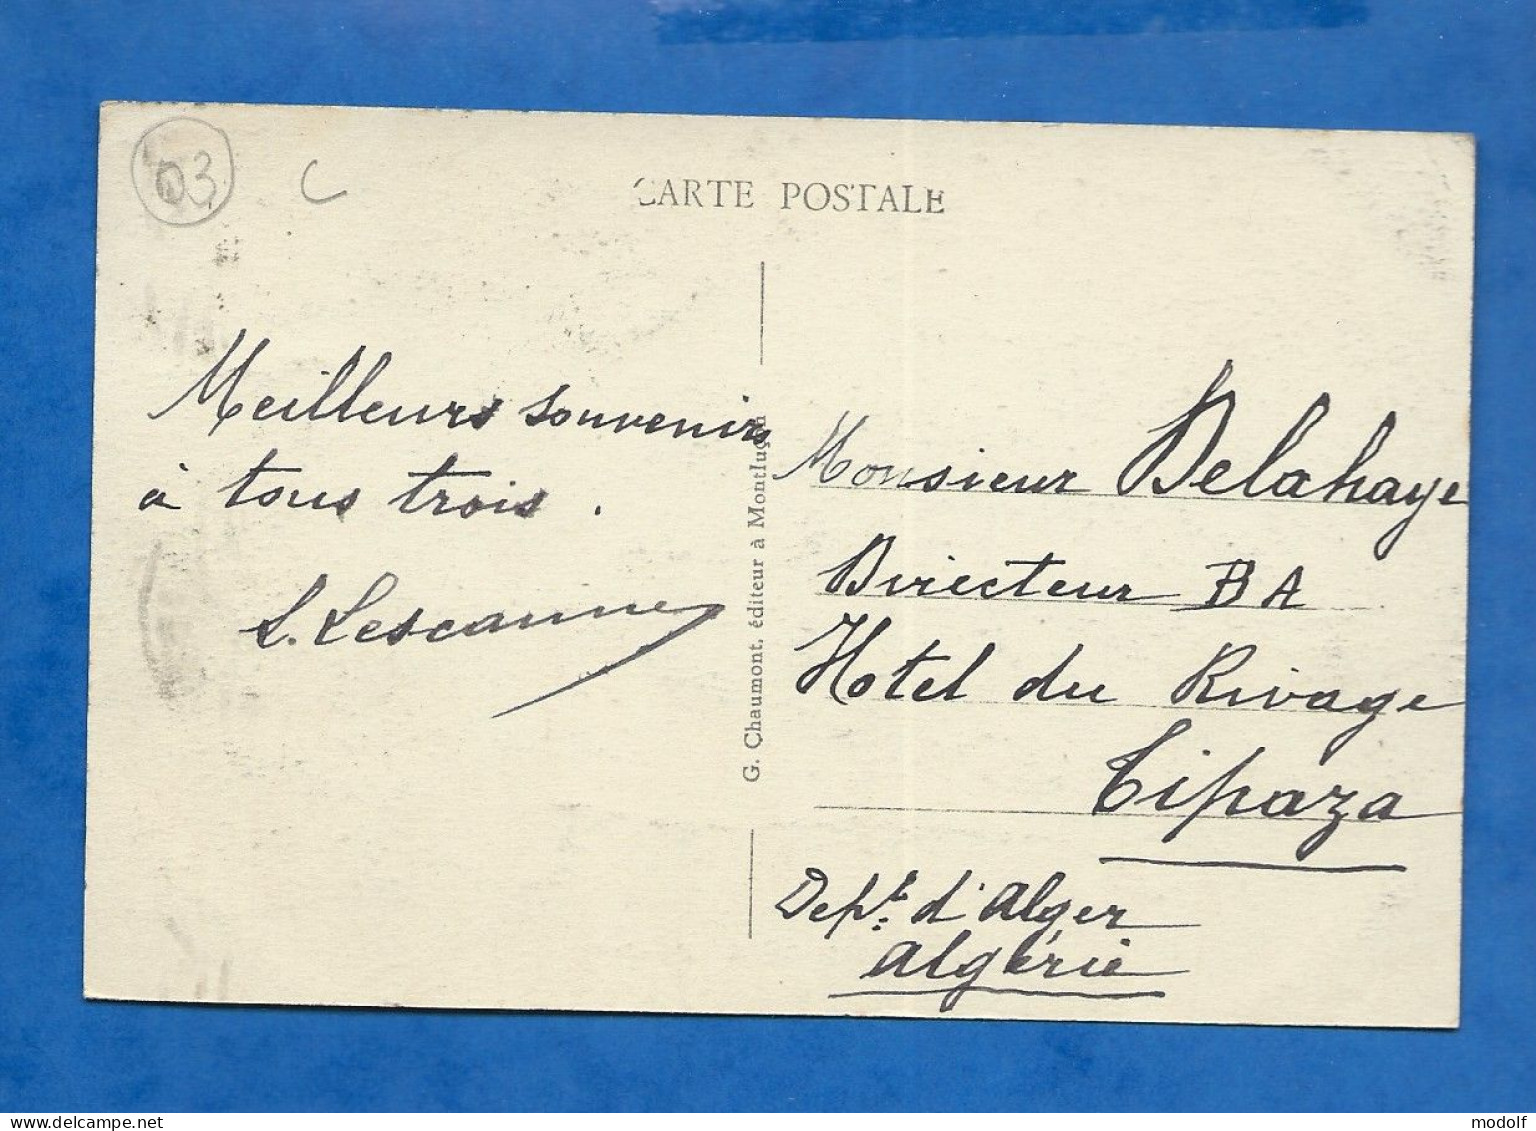 03
C
CARTE POSTALE
Meilleurs souvenirs
à tous trois.
L. Lescanne
G. Chaumont, éditeur à Montluçon
Monsieur Delahaye
Directeur BA
Hotel du Rivage
Tipaza
Dept. d'Alger
Algérie
www.delcampe.net
modolf